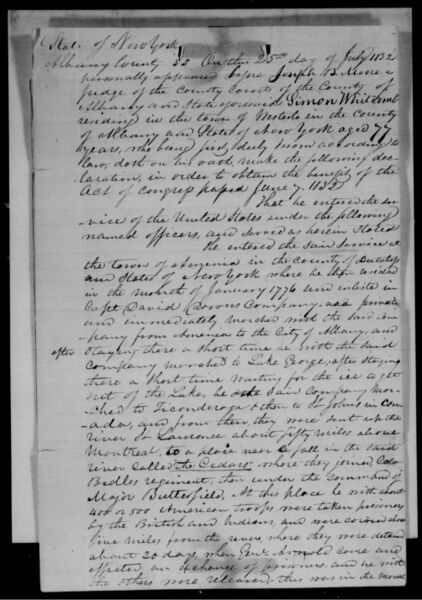 State of New York
Albany County SS On this 25th day of July 1832
personally appeared before Joseph B. Moore a
judge of the County Courts of the County of
Albany and State aforesaid Simon Whitcomb
residing in the town of Westerlo in the County
of Albany and State of New York aged 77
years, who being first duly sworn according to
law, doth on his oath, make the following dec
laration, in order to obtain the benefit of the
Act of Congress passed June 7. 1832
That he entered the ser
vice of the United States under the following
named officers, and served as herein stated
He entered the said service at
the town of Armenia in the County of Dutchess
and State of New York where he then resided
in the month of January 1776 and enlisted in
Capt David Company as a private
and immediately marched with the said com
pany from Armenia to the City of Albany, and
after staying there a short time he with the said
Company marched to Lake George, after staying
there a short time waiting for the ice to get
out of the Lake, he & the said Company mar
ched to Ticonderoga & then to St Johns in Can
ada, and from then, they were sent up the
river St Lawrence about fifty miles above
Montreal, to a place near a fall in the said
river called "the Cedars" where they joined Colo
Bedles regiment, then under the command of
Major Butterfield, At this place he with about
400 or 500 American troops were taken prisoners
by the British and Indians, and were
five miles from the river, where they were detained
about 20 days, when Genl Arnold came and
effected an exchange of prisoners and he with
the others were released, this was in the month